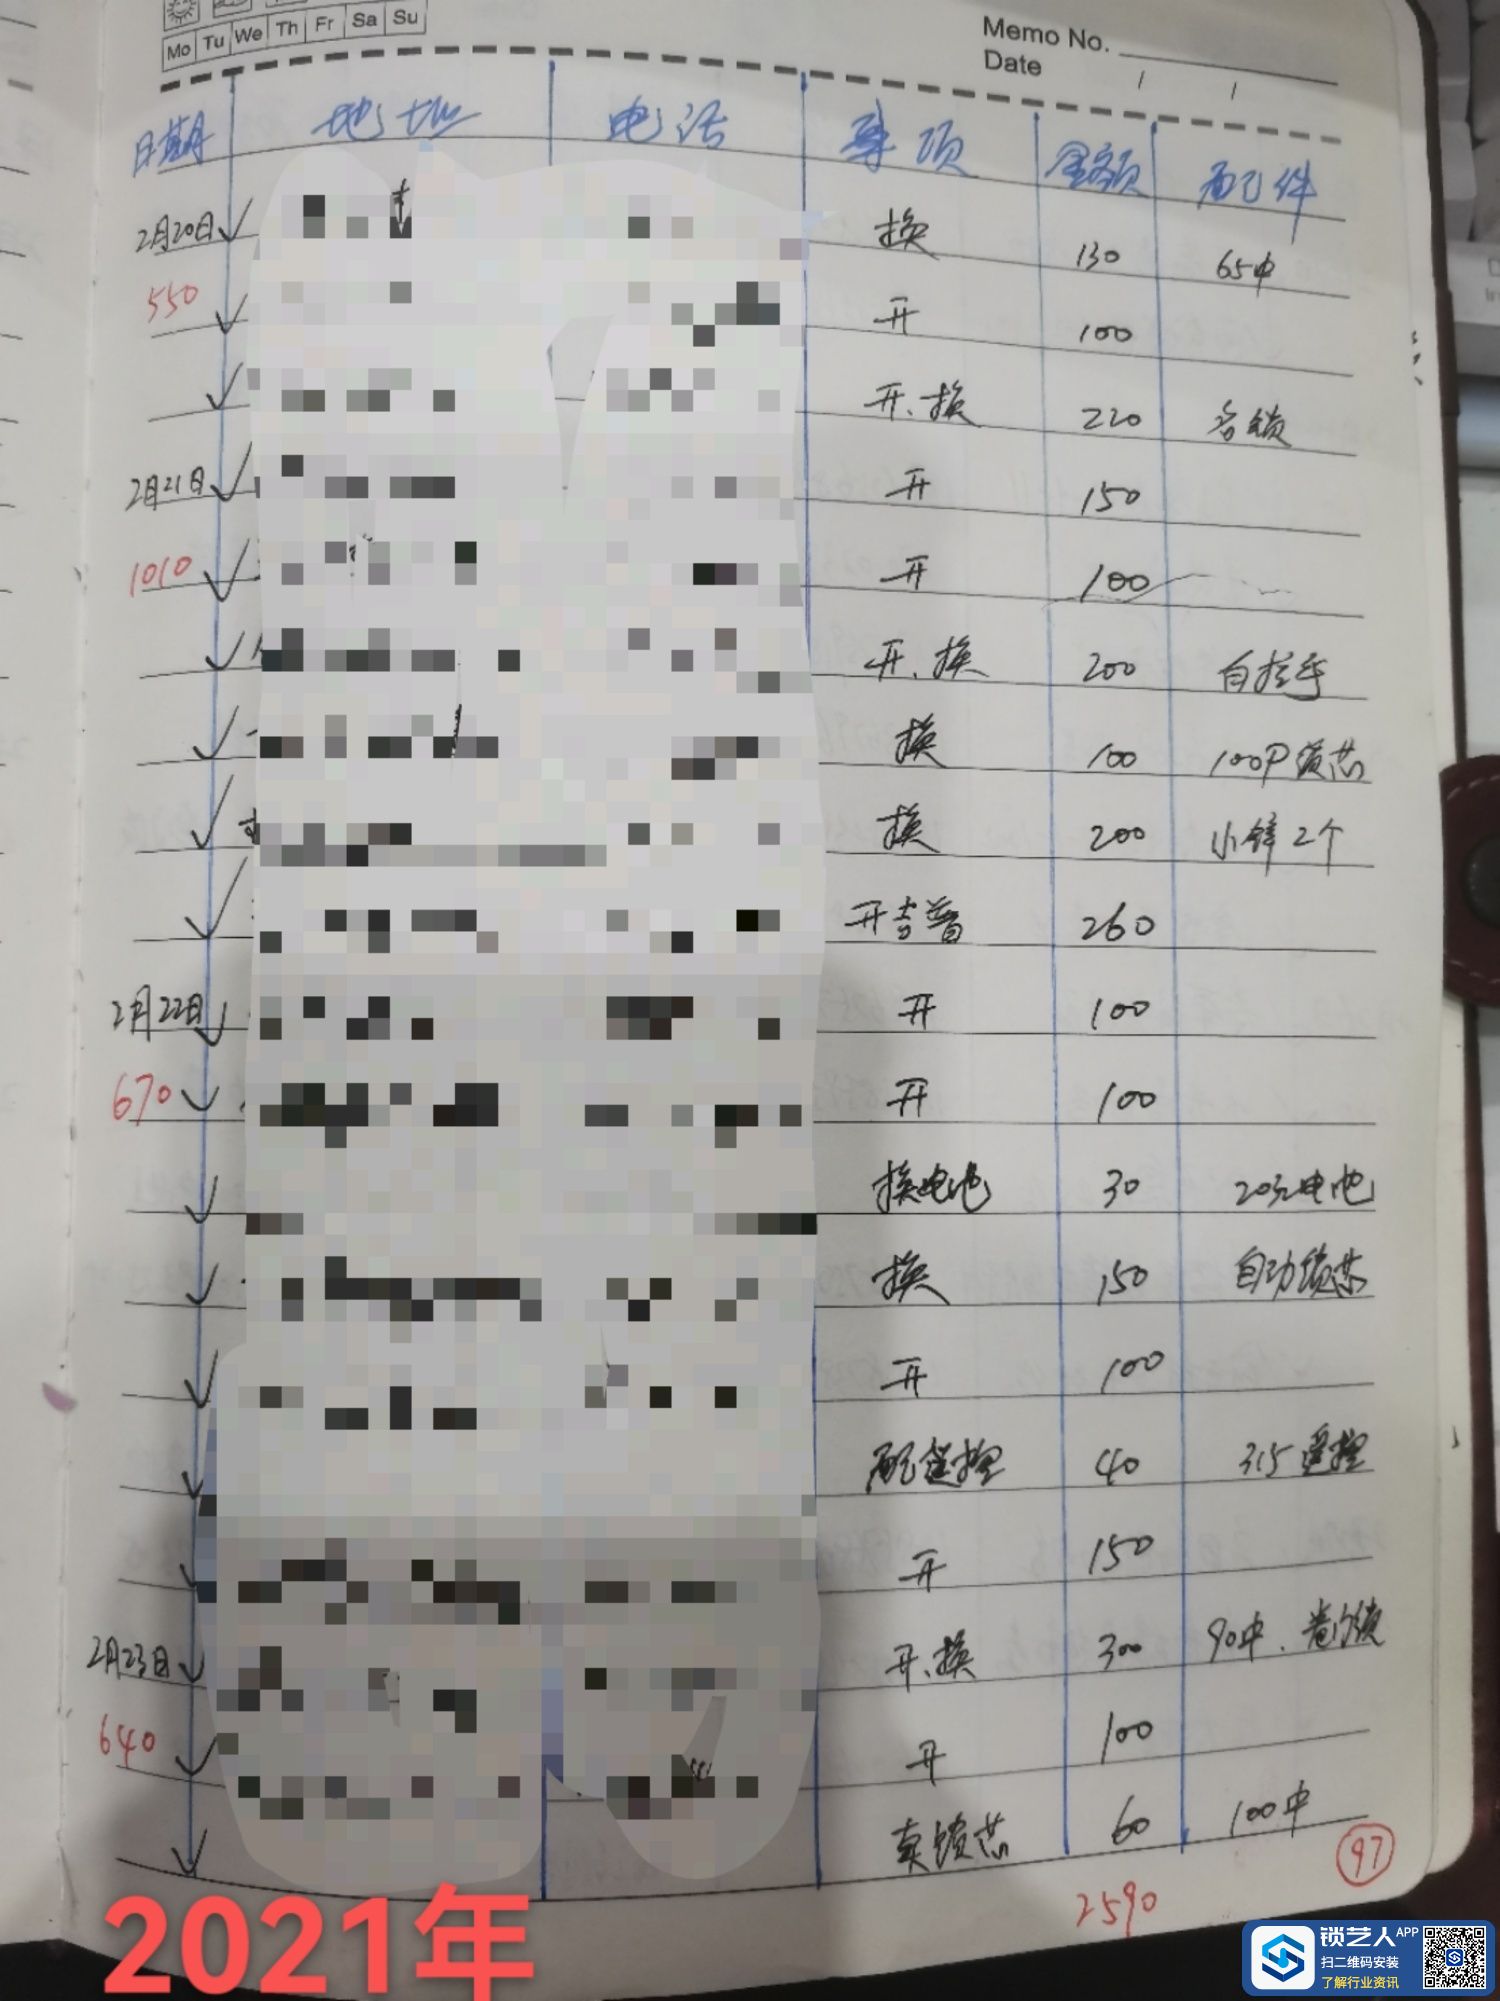 Mo Tu We Th Fr Sa Su
Memo No.
Date / /
日期 地址 电话 事项 金额 配件
2月20日 换 130 65中
550 开 100
开、换 220
2月21日 开 150
1010 开 100
开、换 200 白拉手
换 100 100P锁芯
换 200 小锌2个
开吉普 260
2月22日 开 100
670 开 100
换电池 30 20元电池
换 150 自动锁芯
开 100
配遥控 40 315遥控
开 150
2月23日 开、换 300 90中、卷门锁
640 开 100
卖锁芯 60 100中
2590
97
2021年
锁艺人APP
扫二维码安装
了解行业资讯